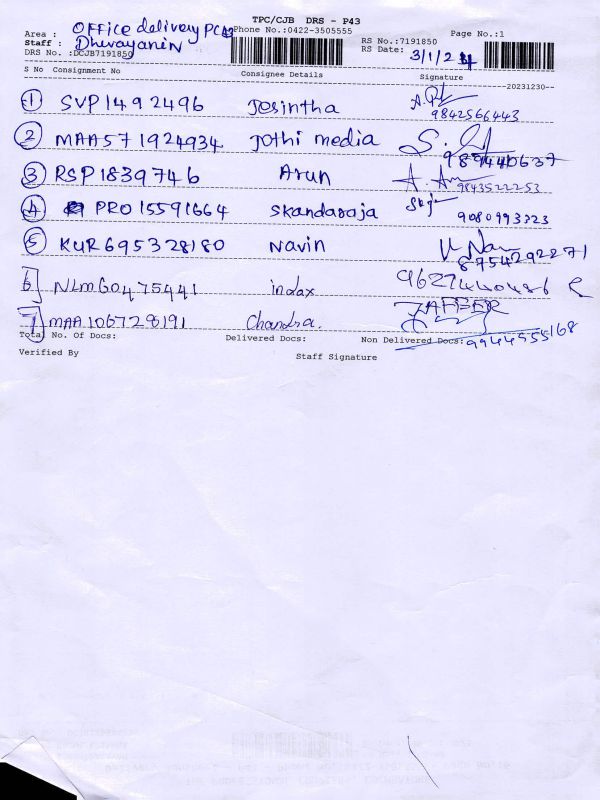 TPC/CJB DRS - P43
Area : Office delivery Phone No.:0422-3505555 RS No.:7191850 Page No.:1
Staff : RS Date: 3/1/24
DRS No. :DCJB7191850
S No Consignment No Consignee Details Signature --20231230--
1 SVP1492496 Josintha
9842566443
2 MAA571924934 Jothi media
3 RSP1839746 Arun 9843522253
4 PRO15591664 Skandaraja 9080993223
5 KUR695328180 Navin
8754292271
6 NLM60475441 indax
7 MAA106728191 Chandra. JAFBER
Total No. Of Docs: Delivered Docs: Non Delivered Docs: 9944555168
Verified By Staff Signature